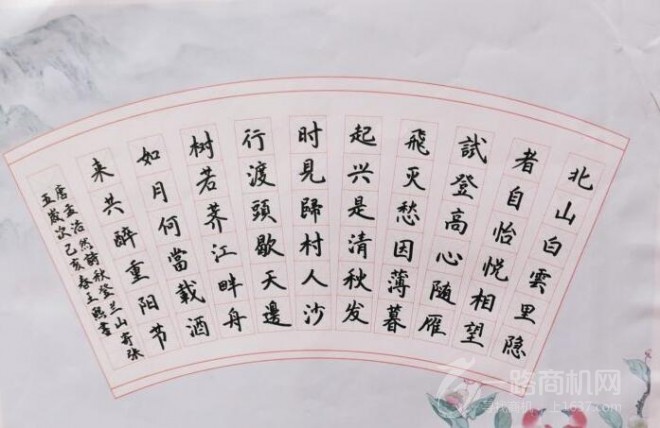 北山白雲里隐
者自怡悦相望
試登高心随雁
飛灭愁因薄暮
起兴是清秋发
时見歸村人沙
行渡頭歇天邊
树若荠江畔舟
如月何當载酒
来共醉重阳节
唐孟浩然詩秋登兰山寄张
五歲次己亥春王書
一路商机网
上1637.com